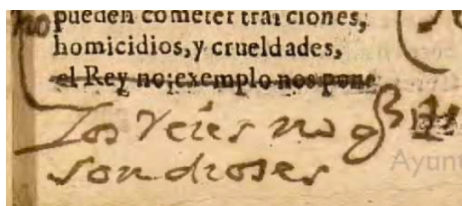 no pueden cometer traiciones,
homicidios, y crueldades,
el Rey no, exemplo nos pone
Los reies no q
son dioses
Ayunt